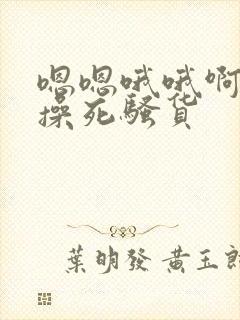 嗯嗯哦哦啊
操死骚货
葉明發 黄玉郎